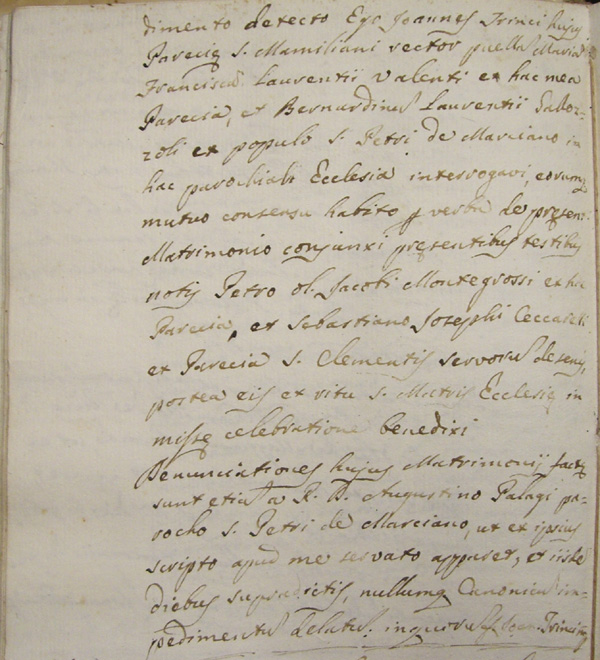 dimento detecto Ego Joannes Trinci hujus
Parecię S. Mamiliani rector puellā Mariā
Franciscā Laurentii Valenti ex hac mea
Parecia, et Bernardinū Laurentii Saloz-
zoli ex populo S. Petri de Marciano in
hac parochiali Ecclesia interrogavi, eorumq
mutuo consensu habito p verba de pręsenti
Matrimonio conjunxi pręsentibus testibus
notis Petro ol. Jacobi Montegrossi ex hac
Parecia, et Sebastiano Josephi Ceccarelli
ex Parecia S. Clementis servorū de senis,
postea eis ex ritu S. Matris Ecclesię in
missę celebratione benedixi
Denunciationes hujus Matrimonij factę
sunt etiā a R. D. Augustino Palagi pa-
rocho S. Petri de Marciano, ut ex ipsius
scripto apud me servato apparet, et iisdē
diebus supradictis, nullumq Canonicū im-
pedimentū delatū. in quorū Joan. Trinci